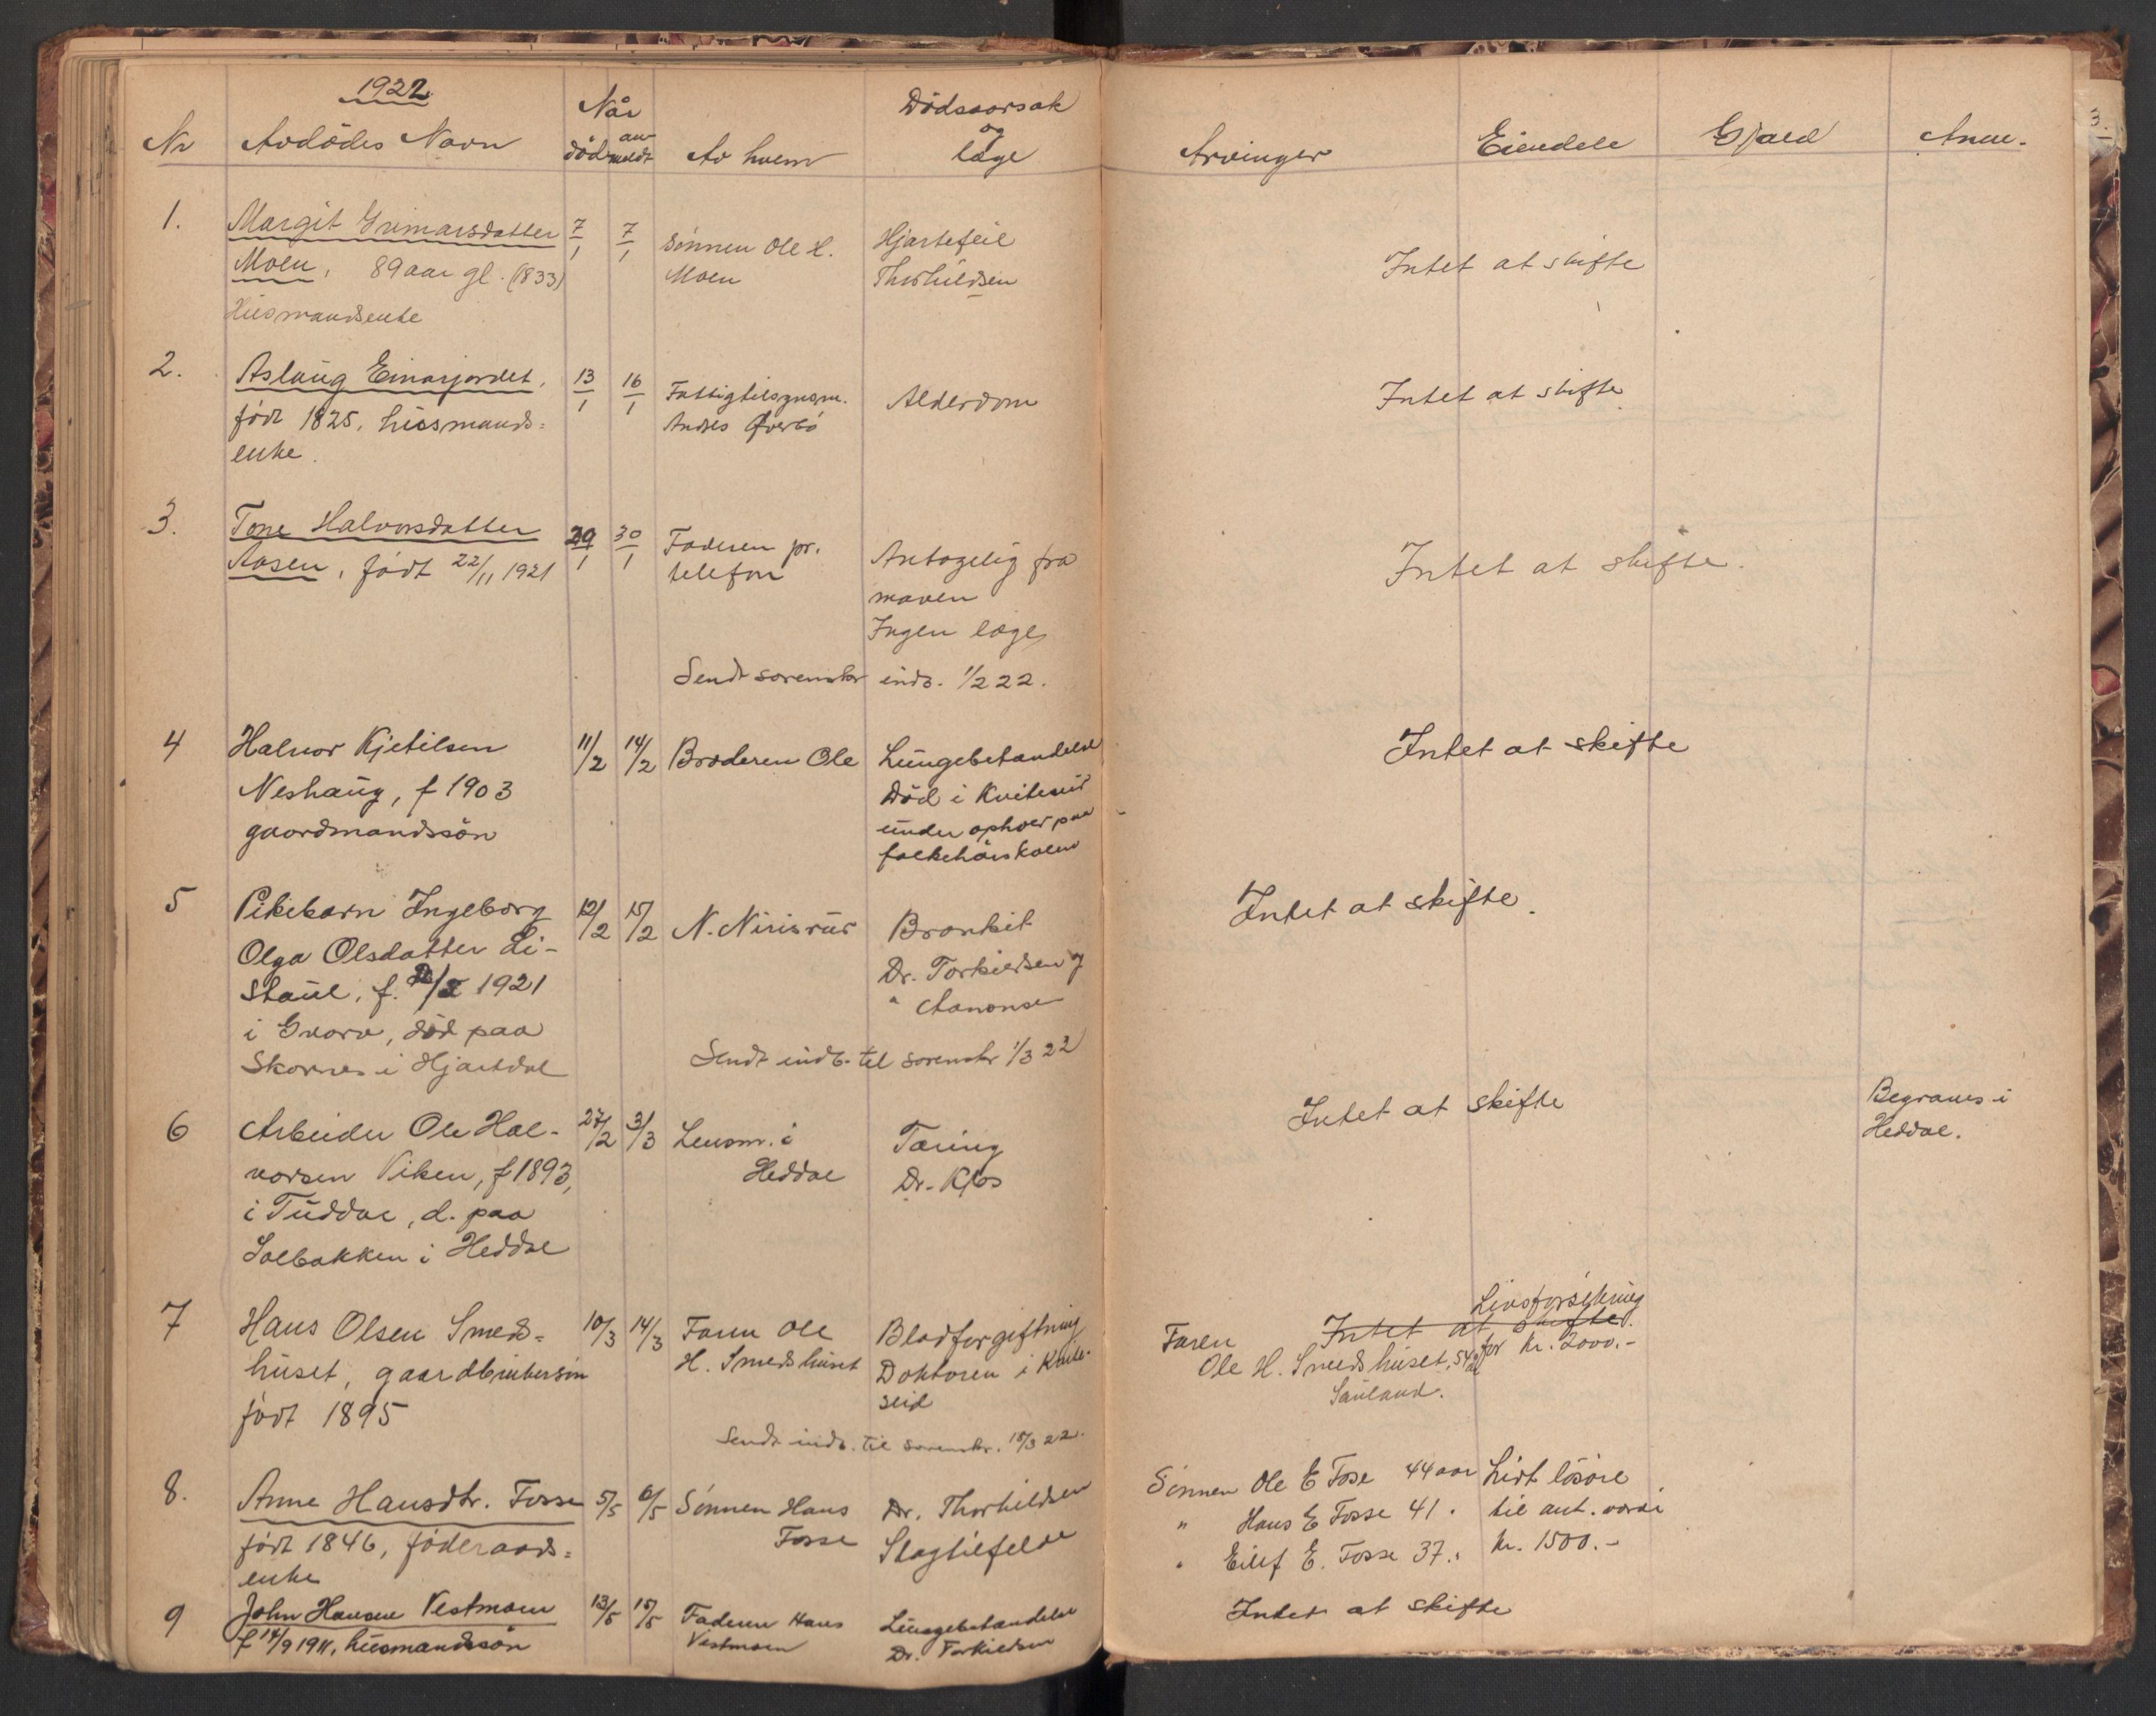 1922
Nr
Avdödes Navn
Når
död
an-
meldt
Av hvem
Dödsaarsak
og
læge
Arvinger
Eiendele
Gjæld
Anm.
3.
1.
Margit Grimarsdatter
Moen, 89 aar gl. (1833)
Husmandsenke
7/1
7/1
Sönnen Ole H.
Moen
Hjartefeil
Thorkildsen
Intet at skifte
2.
Aslaug Einarjordet,
född 1825, husmands=
enke.
13/1
16/1
Fattigtilsynsm.
Andres Øverbö
Alderdom
Intet at skifte
3.
Tone Halvorsdatter
Aasen, född 22/11 1921
29/1
30/1
Faderen pr.
telefon
Antagelig fra
maven
Ingen læge
Intet at skifte.
Sendt sorenskr indb. 1/2 22.
4
Halvor Kjetilsen
Neshaug, f 1903
gaardmandssön
11/2
14/2
Broderen Ole
Lungebetændelse
Död i Kviteseid
under ophold paa
folkehöiskolen
Intet at skifte
5
Pikebarn Ingeborg
Olga Olsdatter Li-
staul, f. 1921
i Gvarv, död paa
Skornes i Hjartdal
12/2
15/2
N. Nirisrud
Bronkit
Dr. Torkildsen og
" Aanonsen
Intet at skifte.
Sendt indb. til sorenskr 1/3 22
6
Arbeider Ole Hal-
vorsen Viken, f 1893,
i Tuddal, d. paa
Solbakken i Heddal
27/2
3/3
Lensm. i
Heddal
Tæring
Dr. Klos
Intet at skifte
Begraves i
Heddal.
7
Hans Olsen Smeds=
huset, gaardbrukersön
född 1895
10/3
14/3
Faren Ole
H. Smedshuset
Blodforgiftning
Doktoren i Kvite-
seid
Livsforsikring
Intet at skifte.
for kr. 2000.-
Faren
Ole H. Smedshuset, 54 aar
Sauland.
Sendt indb. til sorenskr. 15/3 22.
8.
Anne Hansdtr. Fosse
född 1846, föderaads=
enke
5/5
6/5
Sönnen Hans
Fosse
Dr. Thorkildsen
Slagtilfelde
Sönnen Ole E Fose 44 aar
" Hans E Fosse 41 "
" Eilef E. Fosse 37 "
Lidt lösöre
til ant. værdi
kr. 1500.-
9
John Hansen Vestmoen
f 14/9 1911, husmandssön
13/5
15/5
Faderen Hans
Vestmoen
Lungebetændelse
Dr. Torkildsen
Intet at skifte